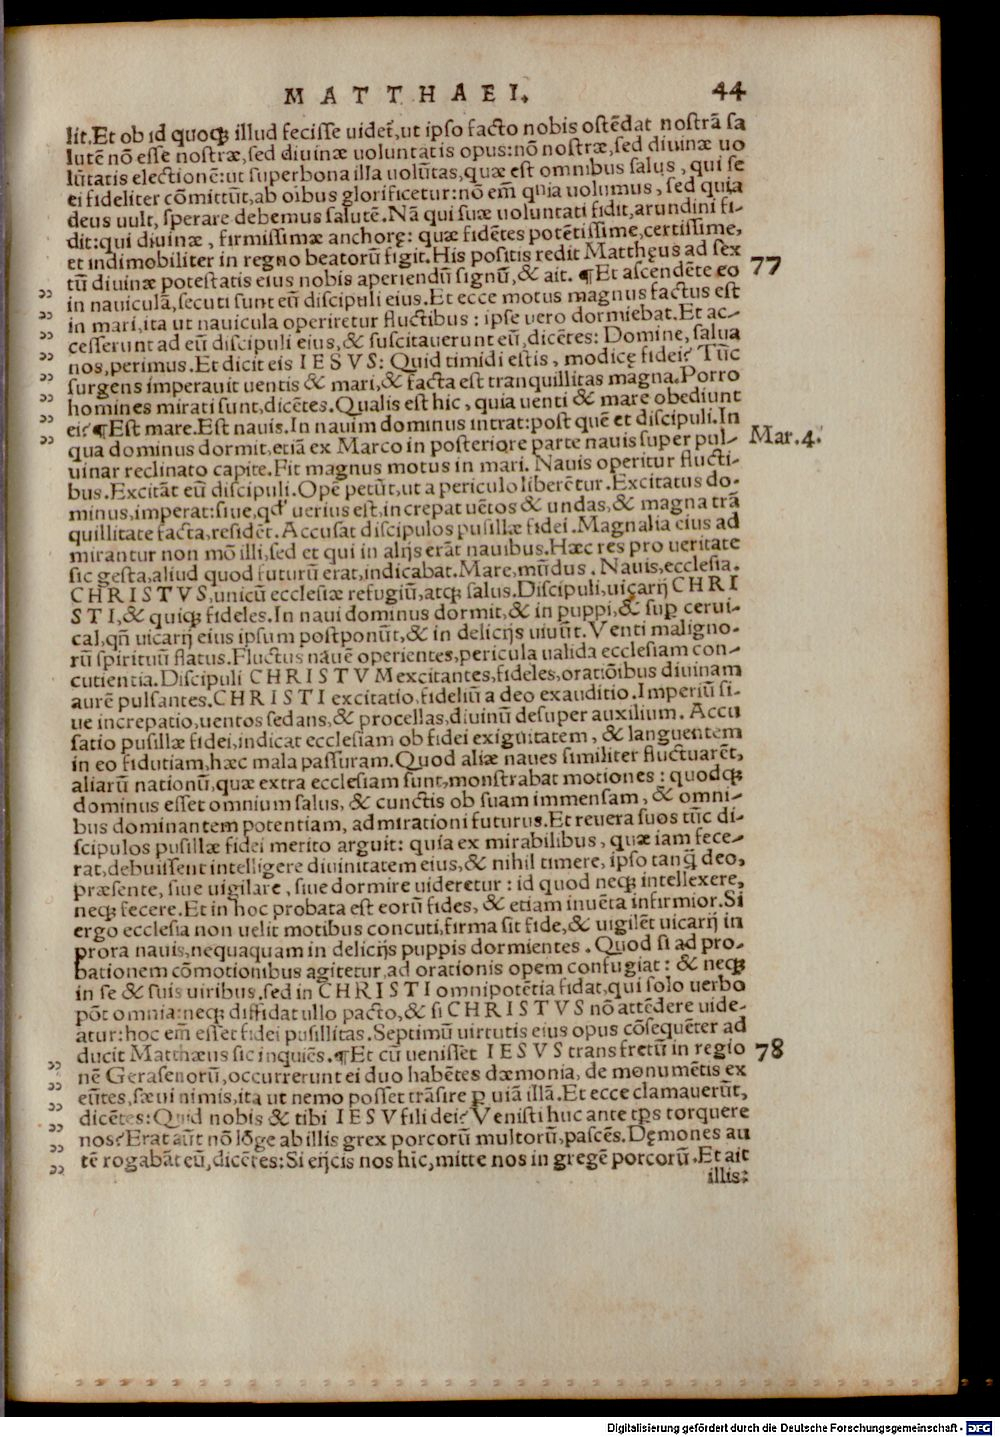 MATTHAEI. 44
lit. Et ob id quoqꝫ illud fecisse uidet̃, ut ipso facto nobis ostēdat nostrā sa
lutē nō esse nostræ, sed diuinæ uoluntatis opus: nō nostræ, sed diuinæ uo
lūtatis electionē: ut superbona illa uolūtas, quæ est omnibus salus, qui se
ei fideliter cōmittūt, ab oībus glorificetur: nō em̄ quia uolumus, sed quia
deus uult, sperare debemus salutē. Nā qui suæ uoluntati fidit, arundini fi-
dit: qui diuinæ, firmissimæ anchorę: quæ fidētes potētissime, certissime,
et indimobiliter in regno beatorū figit. His positis redit Matthęus ad sex
tū diuinæ potestatis eius nobis aperiendū signū, & ait. ¶ Et ascendēte eo 77
in nauiculā, secuti sunt eū discipuli eius. Et ecce motus magnus factus est
in mari, ita ut nauicula operiretur fluctibus: ipse uero dormiebat. Et ac-
cesserunt ad eū discipuli eius, & suscitauerunt eū, dicētes: Domine, salua
nos, perimus. Et dicit eis IESVS: Quid timidi estis, modicę fidei? Tūc
surgens imperauit uentis & mari, & facta est tranquillitas magna. Porro
homines mirati sunt, dicētes. Qualis est hic, quia uenti & mare obediunt
ei? ¶ Est mare. Est nauis. In nauim dominus intrat: post quē et discipuli. In
qua dominus dormit, etiā ex Marco in posteriore parte nauis super pul- Mar. 4.
uinar reclinato capite. Fit magnus motus in mari. Nauis operitur flucti-
bus. Excitāt eū discipuli. Opē petūt, ut a periculo liberētur. Excitatus do-
minus, imperat: siue, qđ uerius est, increpat uētos & undas, & magna trā
quillitate facta, residēt. Accusat discipulos pusillæ fidei. Magnalia eius ad
mirantur non mō illi, sed et qui in alijs erāt nauibus. Hæc res pro ueritate
sic gesta, aliud quod futurū erat, indicabat. Mare, mūdus. Nauis, ecclesia.
CHRISTVS, unicū ecclesiæ refugiū, atqꝫ salus. Discipuli, uicarij CHRI
STI, & quiqꝫ fideles. In naui dominus dormit, & in puppi, & sup̱ cerui-
cal, qñ uicarij eius ipsum postponūt, & in delicijs uiuūt. Venti maligno-
rū spirituū flatus. Fluctus nauē operientes, pericula ualida ecclesiam con-
cutientia. Discipuli CHRISTVM excitantes, fideles, oratiōibus diuinam
aurē pulsantes. CHRISTI excitatio, fideliū a deo exauditio. Imperiū si-
ue increpatio, uentos sedans, & procellas, diuinū desuper auxilium. Accu
satio pusillæ fidei, indicat ecclesiam ob fidei exiguitatem, & languentem
in eo fidutiam, hæc mala passuram. Quod aliæ naues similiter fluctuarēt,
aliarū nationū, quæ extra ecclesiam sunt, monstrabat motiones: quodqꝫ
dominus esset omnium salus, & cunctis ob suam immensam, & omni-
bus dominantem potentiam, admirationi futurus. Et reuera suos tūc di-
scipulos pusillæ fidei merito arguit: quia ex mirabilibus, quæ iam fece-
rat, debuissent intelligere diuinitatem eius, & nihil timere, ipso tanq̄ deo,
præsente, siue uigilare, siue dormire uideretur: id quod neqꝫ intellexere,
neqꝫ fecere. Et in hoc probata est eorū fides, & etiam inuēta infirmior. Si
ergo ecclesia non uelit motibus concuti, firma sit fide, & uigilēt uicarij in
prora nauis, nequaquam in delicijs puppis dormientes. Quod si ad pro-
bationem cōmotionibus agitetur, ad orationis opem confugiat: & neqꝫ
in se & suis uiribus, sed in CHRISTI omnipotētia fidat, qui solo uerbo
pōt omnia: neqꝫ diffidat ullo pacto, & si CHRISTVS nō attēdere uide-
atur: hoc em̄ esset fidei pusillitas. Septimū uirtutis eius opus cōsequēter ad
ducit Matthæus sic inquiēs. ¶ Et cū uenisset IESVS trans fretū in regio 78
nē Gerasenorū, occurrerunt ei duo habētes dæmonia, de monumētis ex
eūtes, sæui nimis, ita ut nemo posset trāsire ꝑ uiā illā. Et ecce clamauerūt,
dicētes: Quid nobis & tibi IESV fili dei? Venisti huc ante tp̄s torquere
nos? Erat aūt nō lōge ab illis grex porcorū multorū, pascēs. Dęmones au
tē rogabāt eū, dicētes: Si eijcis nos hīc, mitte nos in gregē porcorū. Et ait
illis:
Digitalisierung gefördert durch die Deutsche Forschungsgemeinschaft - DFG